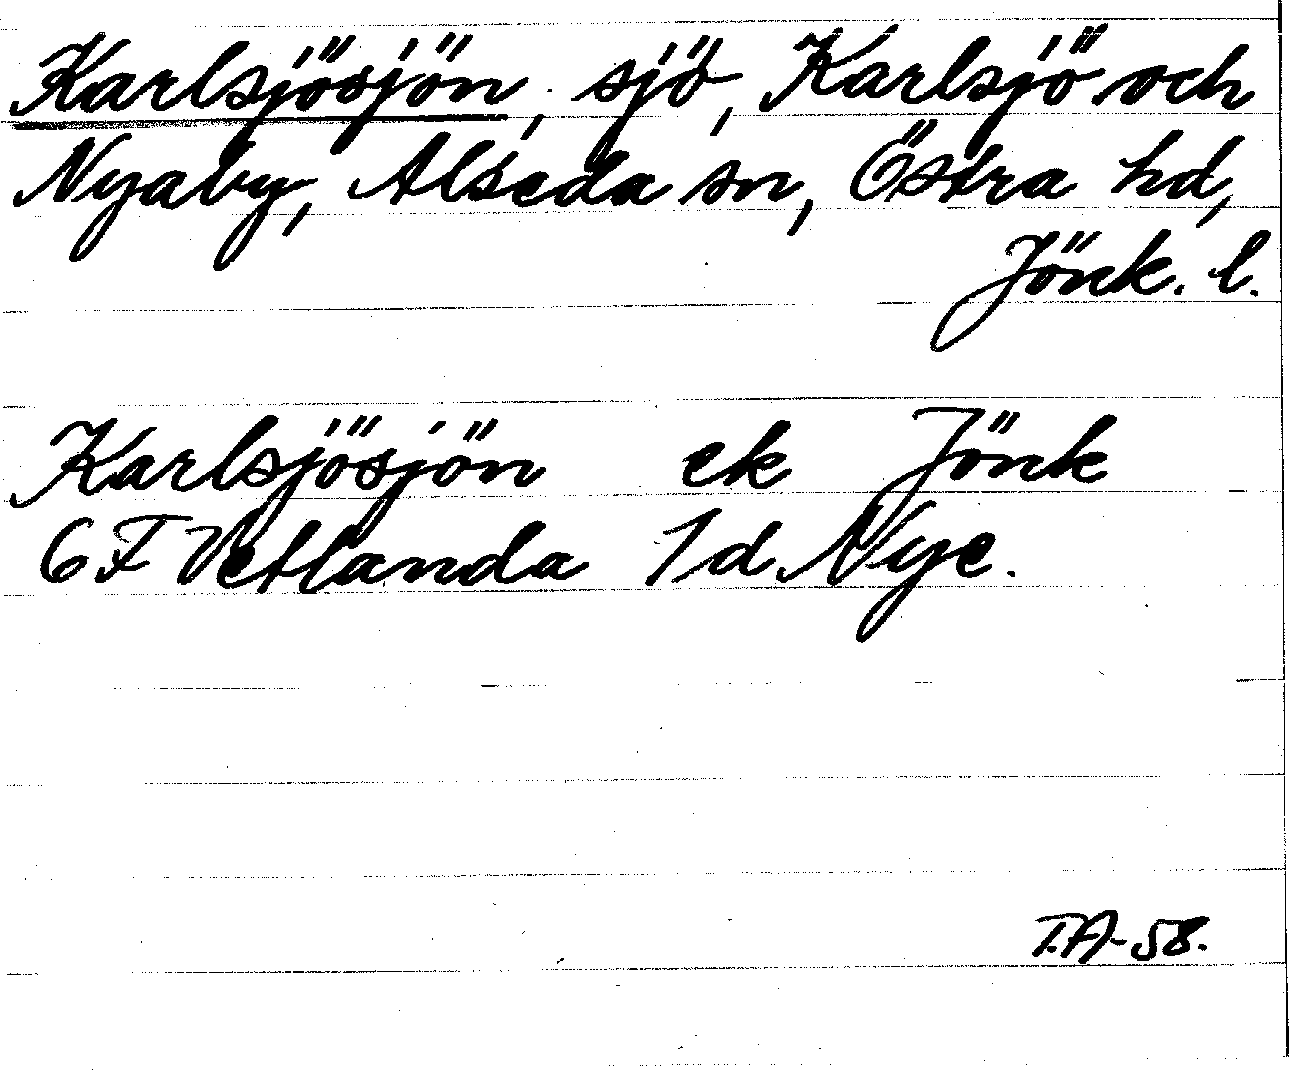 Karlsjösjön, sjö, Karlsjö och
Nyaby, Alseda sn, Östra hd,
Jönk. l.
Karlsjösjön ek Jönk
6F Vetlanda 1d Nye.
T.A-58.